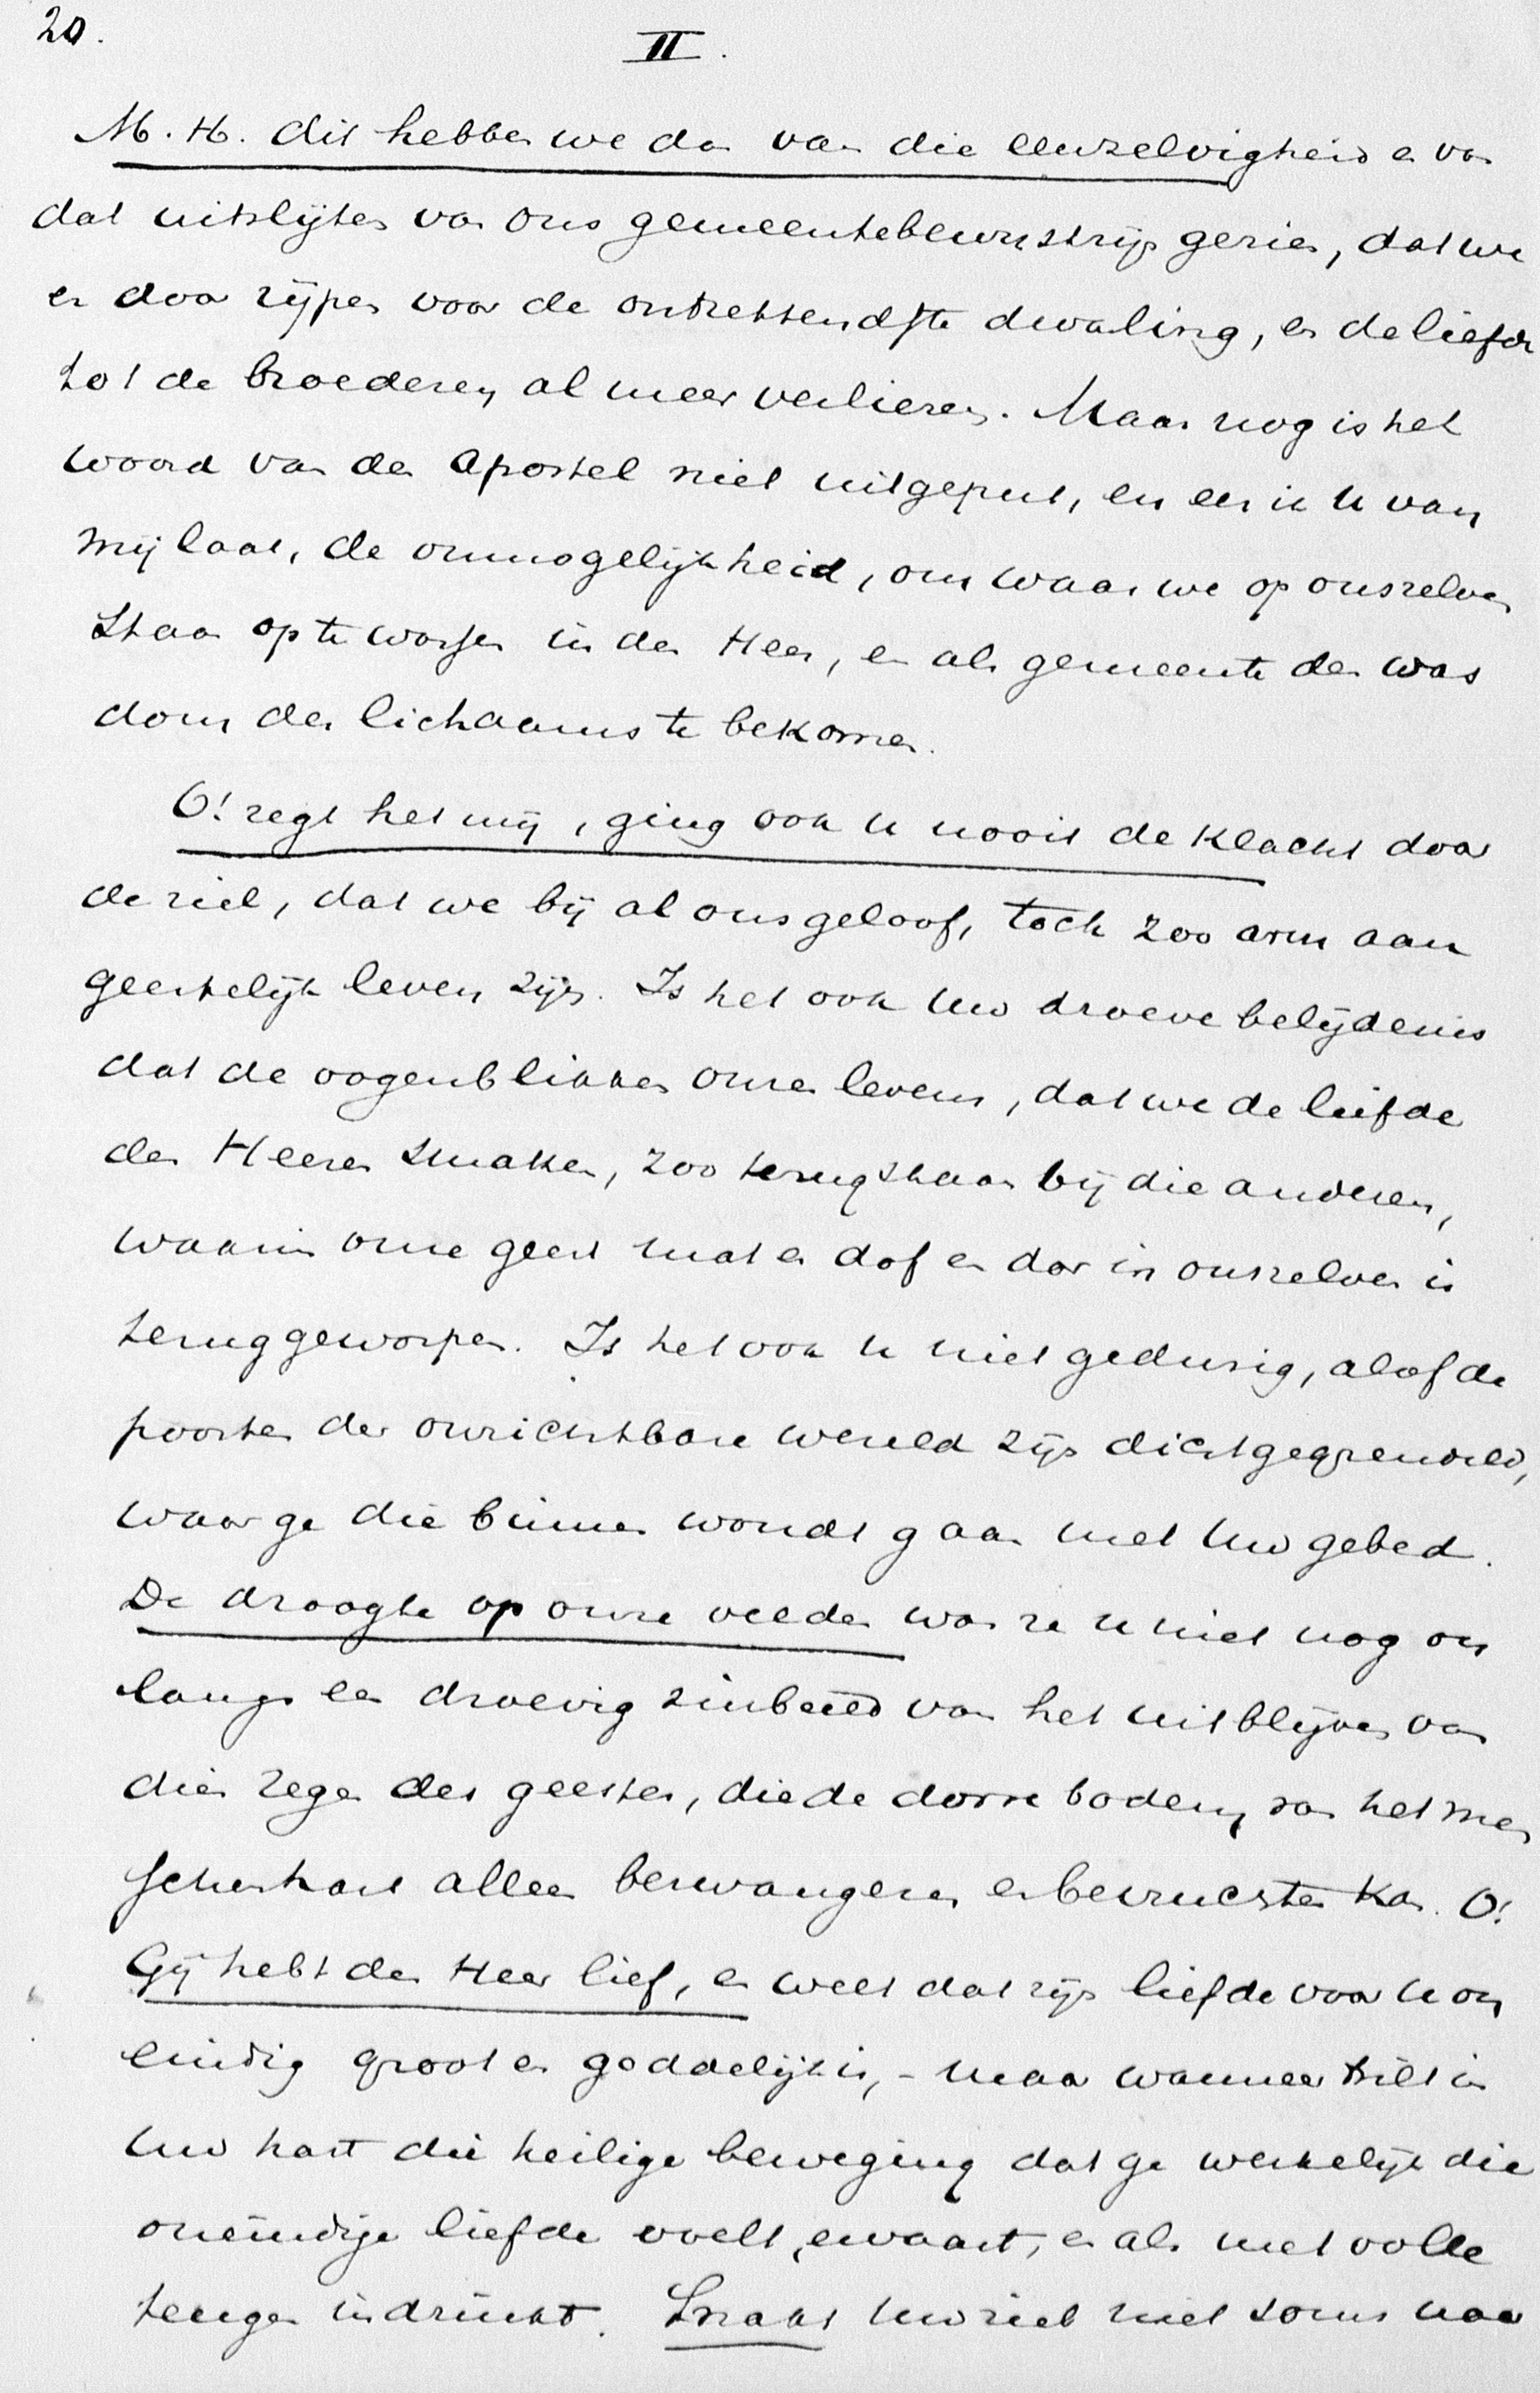 20.
II.
M. H. dit hebben we dan van die eenzelvigheid en van
dat uitslijten van ons gemeentebewustzijn gezien, dat we
er door rijpen voor de ontzettendste dwaling, en de liefde
tot de broederen al meer verliezen. Maar nog is het
woord van den apostel niet uitgeput, en eer ik U van
mij laat, de onmogelijkheid, om waar we op onszelven
staan op te wassen in den Heer, en als gemeente den was
dom des lichaams te bekomen.
O! zegt het mij, ging ook U nooit de klacht door
de ziel, dat we bij al ons geloof, toch zoo arm aan
geestelijk leven zijn. Is het ook Uw droeve belijdenis
dat de oogenblikken onzes levens, dat we de liefde
des Heeren smaken, zoo terugstaan bij die anderen,
waarin onze geest mat en dof en dor in onszelven is
teruggeworpen. Is het ook U niet gedurig, alsof de
poorten der onzichtbare wereld zijn dichtgegrendeld,
waar ge die binnen woudt gaan met Uw gebed.
De droogte op onze velden was ze U niet nog on
langs een droevig zinbeeld van het uitblijven van
dien regen des geestes, die de dorre bodem van het men
schenhart alleen bezwangeren en bevruchten kan. O!
Gij hebt den Heer lief, en weet dat zijn liefde voor U on
eindig groot en goddelijk is, - maar wanneer trilt in
Uw hart die heilige beweging dat ge werkelijk die
oneindige liefde voelt, ervaart, en als met volle
teugen indrinkt. Snakt Uw ziel niet soms naar